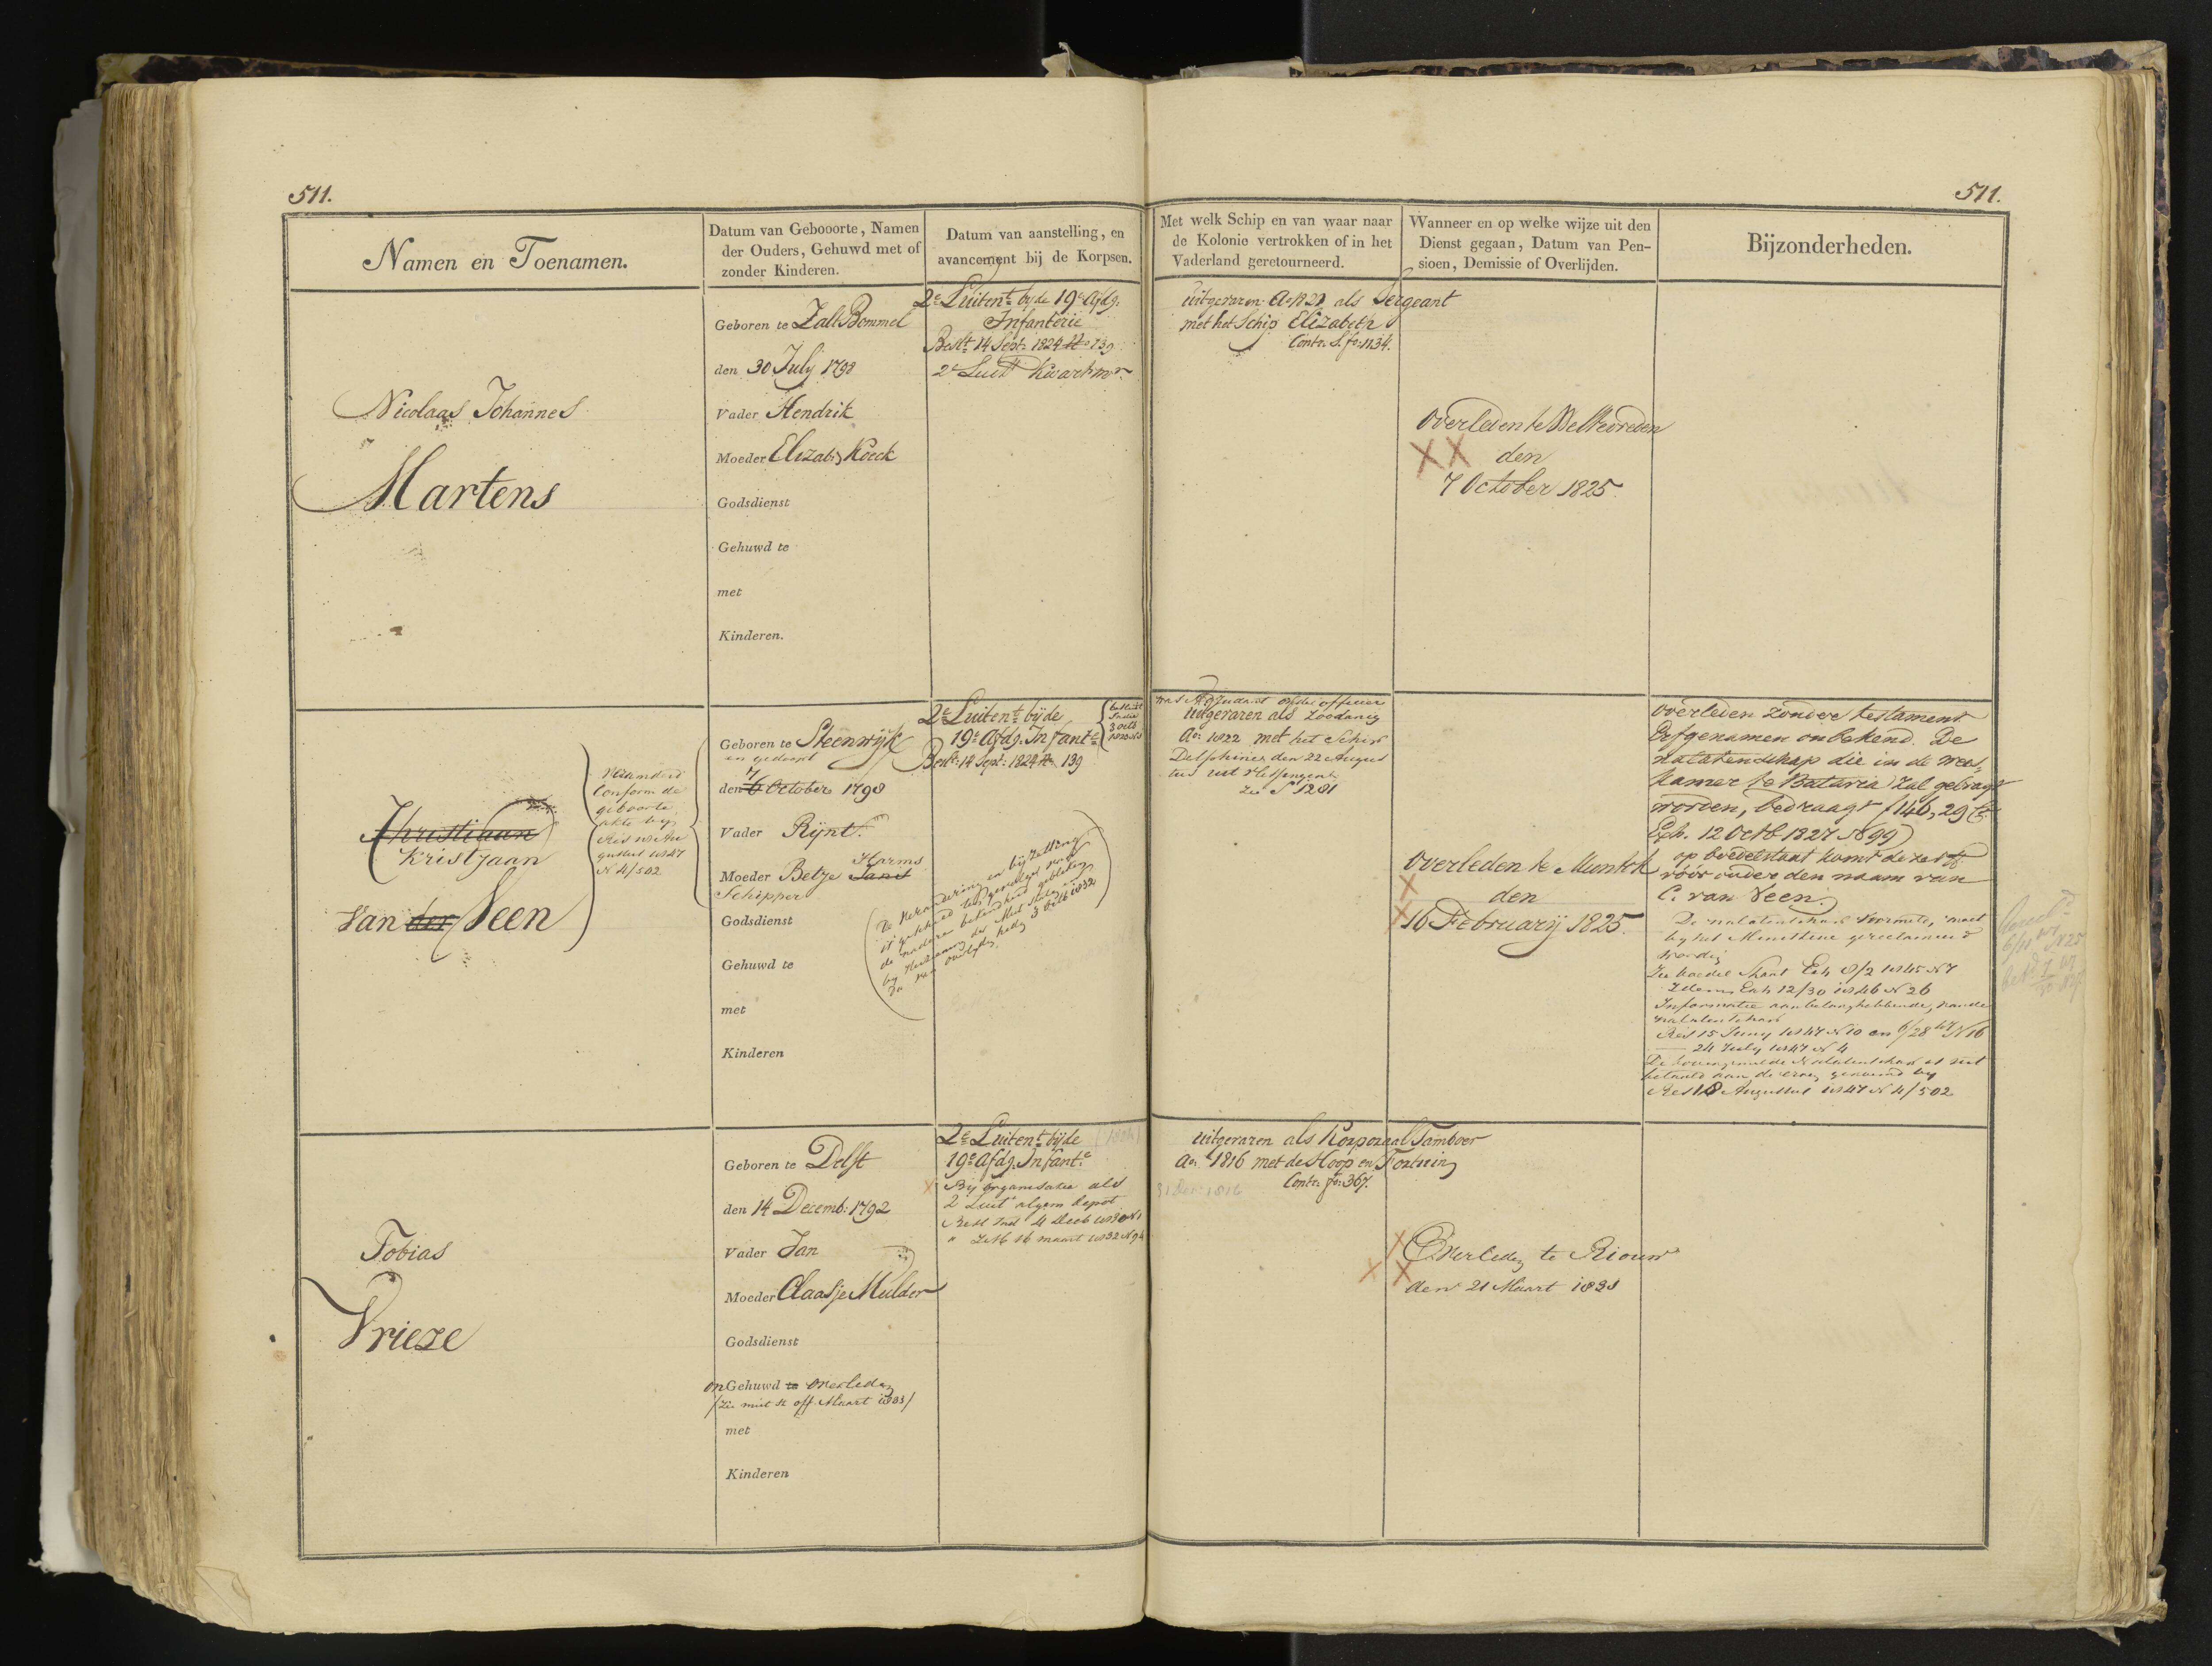 511.
511.
Namen en Toenamen.
Datum van Gebooorte, Namen
der Ouders, Gehuwd met of
zonder Kinderen.
Datum van aanstelling, en
avancement bij de Korpsen.
Met welk Schip en van waar naar
de Kolonie vertrokken of in het
Vaderland geretourneerd.
Wanneer en op welke wijze uit den
Dienst gegaan, Datum van Pen-
sioen, Demissie of Overlijden.
Bijzonderheden.
Nicolaas Johannes
Martens
Geboren te Zalt Bommel
den 30 July 1798
Vader Hendrik
Moeder Elizab: Koeck
Godsdienst
Gehuwd te
met
Kinderen.
2e Luitent bij de 19e Afdg:
Infanterie
Beslt 14 Sept: 1824 No 139
2e Luit Kwartmr
uitgevaren Ao 1821 als Sergeant
met het Schip Elizabeth
Contr. S. fo: 1134.
Overleden te Weltevreden
den
7 October 1825.
Christiaan
Kristjaan
van der Veen
Veranderd
Conform de
geboorte
akte bij
Res 18 Au
gustus 1847
N 4/502
Geboren te Steenwijk
en gedoopt
7
den 6 October 1798
Vader Rijnt.
Harms
Moeder Betje Jans
Schipper
Godsdienst
Gehuwd te
met
Kinderen
De Verandering en bijzetting
is geschied ten gevolge van
de nadere bekendheid gebleken
3 Octb 1832
2e Luitent bijde
19e Afdg. Infante
Beslt: 14 Sept: 1824 No 139
besluit
Indie
3 Octb
was Adjudant onder officier
uitgevaren als zoodanig
Ao: 1822 met het Schip
Delphine den 22 Augus
tus uit Vlissingen
Zie S 1281
Overleden te Muntok
den
16 February 1825.
overleden zonder testament
Erfgenamen onbekend. De
nalatenschap die in de wees
kamer te Batavia zal gebragt
worden, bedraagt f 146,29
Exh. 12 Octb 1827 No 99
op boedelstaat komt dezelve
vóór onder den naam van
C. van Veen.
De nalatenschap vermeld, moet
bij het Ministerie gereclameerd
worden
Zie boedel Staat Exh 8/2 1845 N 7
Idem Exh 12/30 1846 N 26
Informatie aan belanghebbende, van de
nalatenschap
Res 15 Juny 1847 N 10 en 6/28 47 N 16
— 24 July 1847 N 4
De bovengemelde Nalatenschap is uit
betaald aan de erven genaamd bij
Res 18 Augustus 1847 N 4/502
Tobias
Vrieze
Geboren te Delft
den 14 Decemb: 1792
Vader Jan
Moeder Claasje Mulder
Godsdienst
onGehuwd te overleden
(Zie Maart 1833)
met
Kinderen
2e Luitent bijde
19e Afdg. Infant:e
Bij organisatie als
2 Luit algem depot
Besl Ind 4 Decb 1830 N 1
16 maart 1832 N 94
uitgevaren als Korporaal Tamboer
Ao: 1816 met de Hoop en Fortuin
Contr. fo: 367.
Overleden te Riouw
den 21 Maart 1833